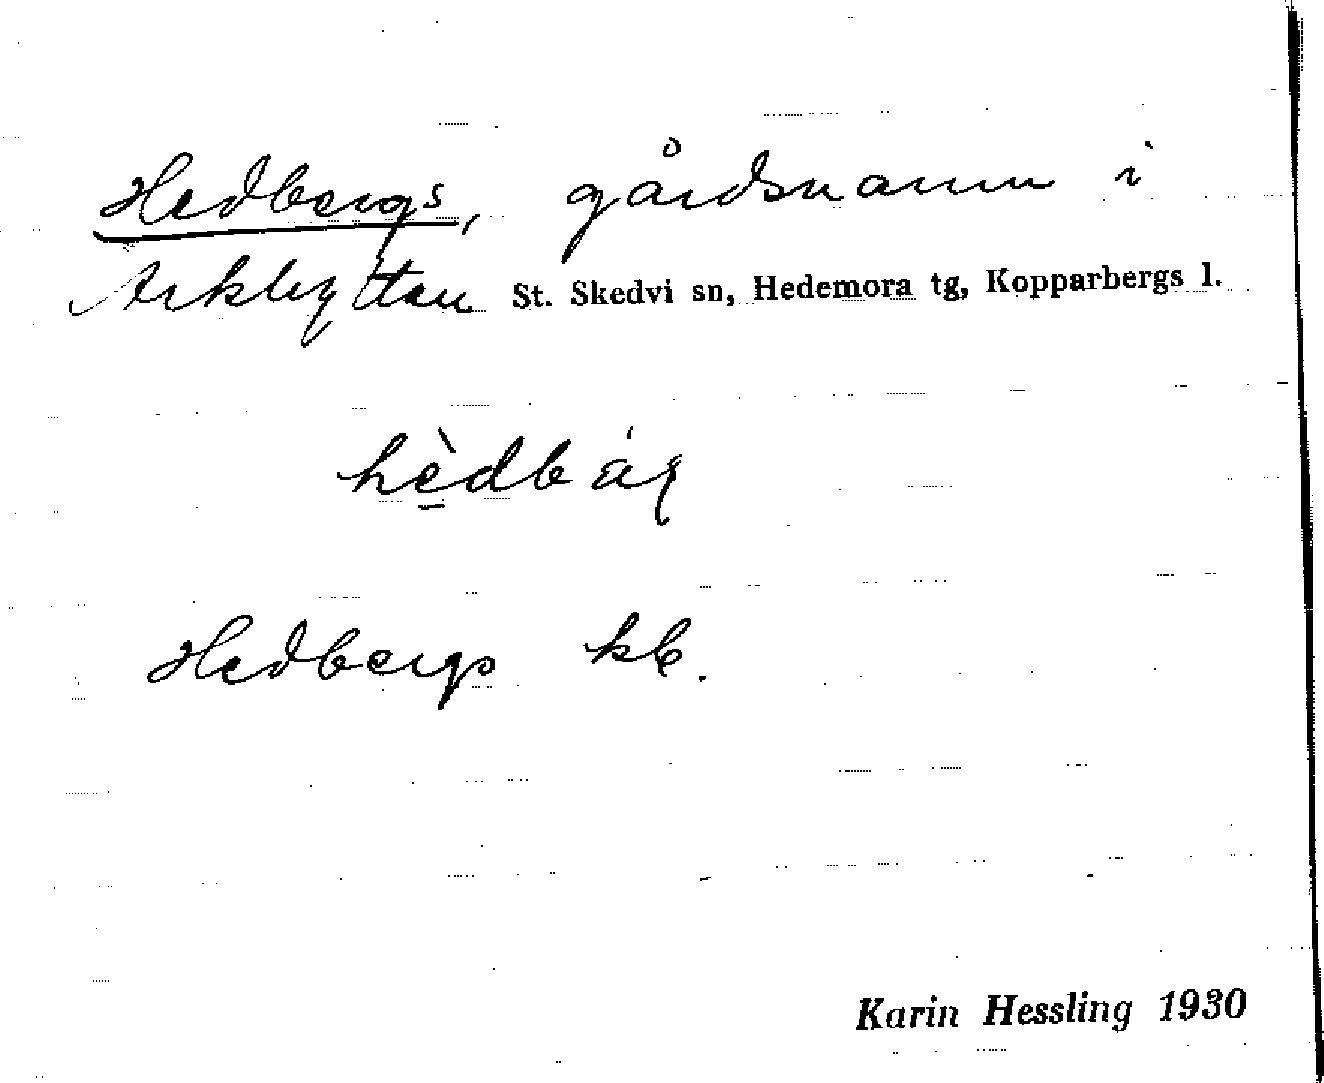 Hedbergs, gårdsnamn i
Arkhyttan St. Skedvi sn, Hedemora tg, Kopparbergs l.
Hedbergs kb.
Karin Hessling 1930